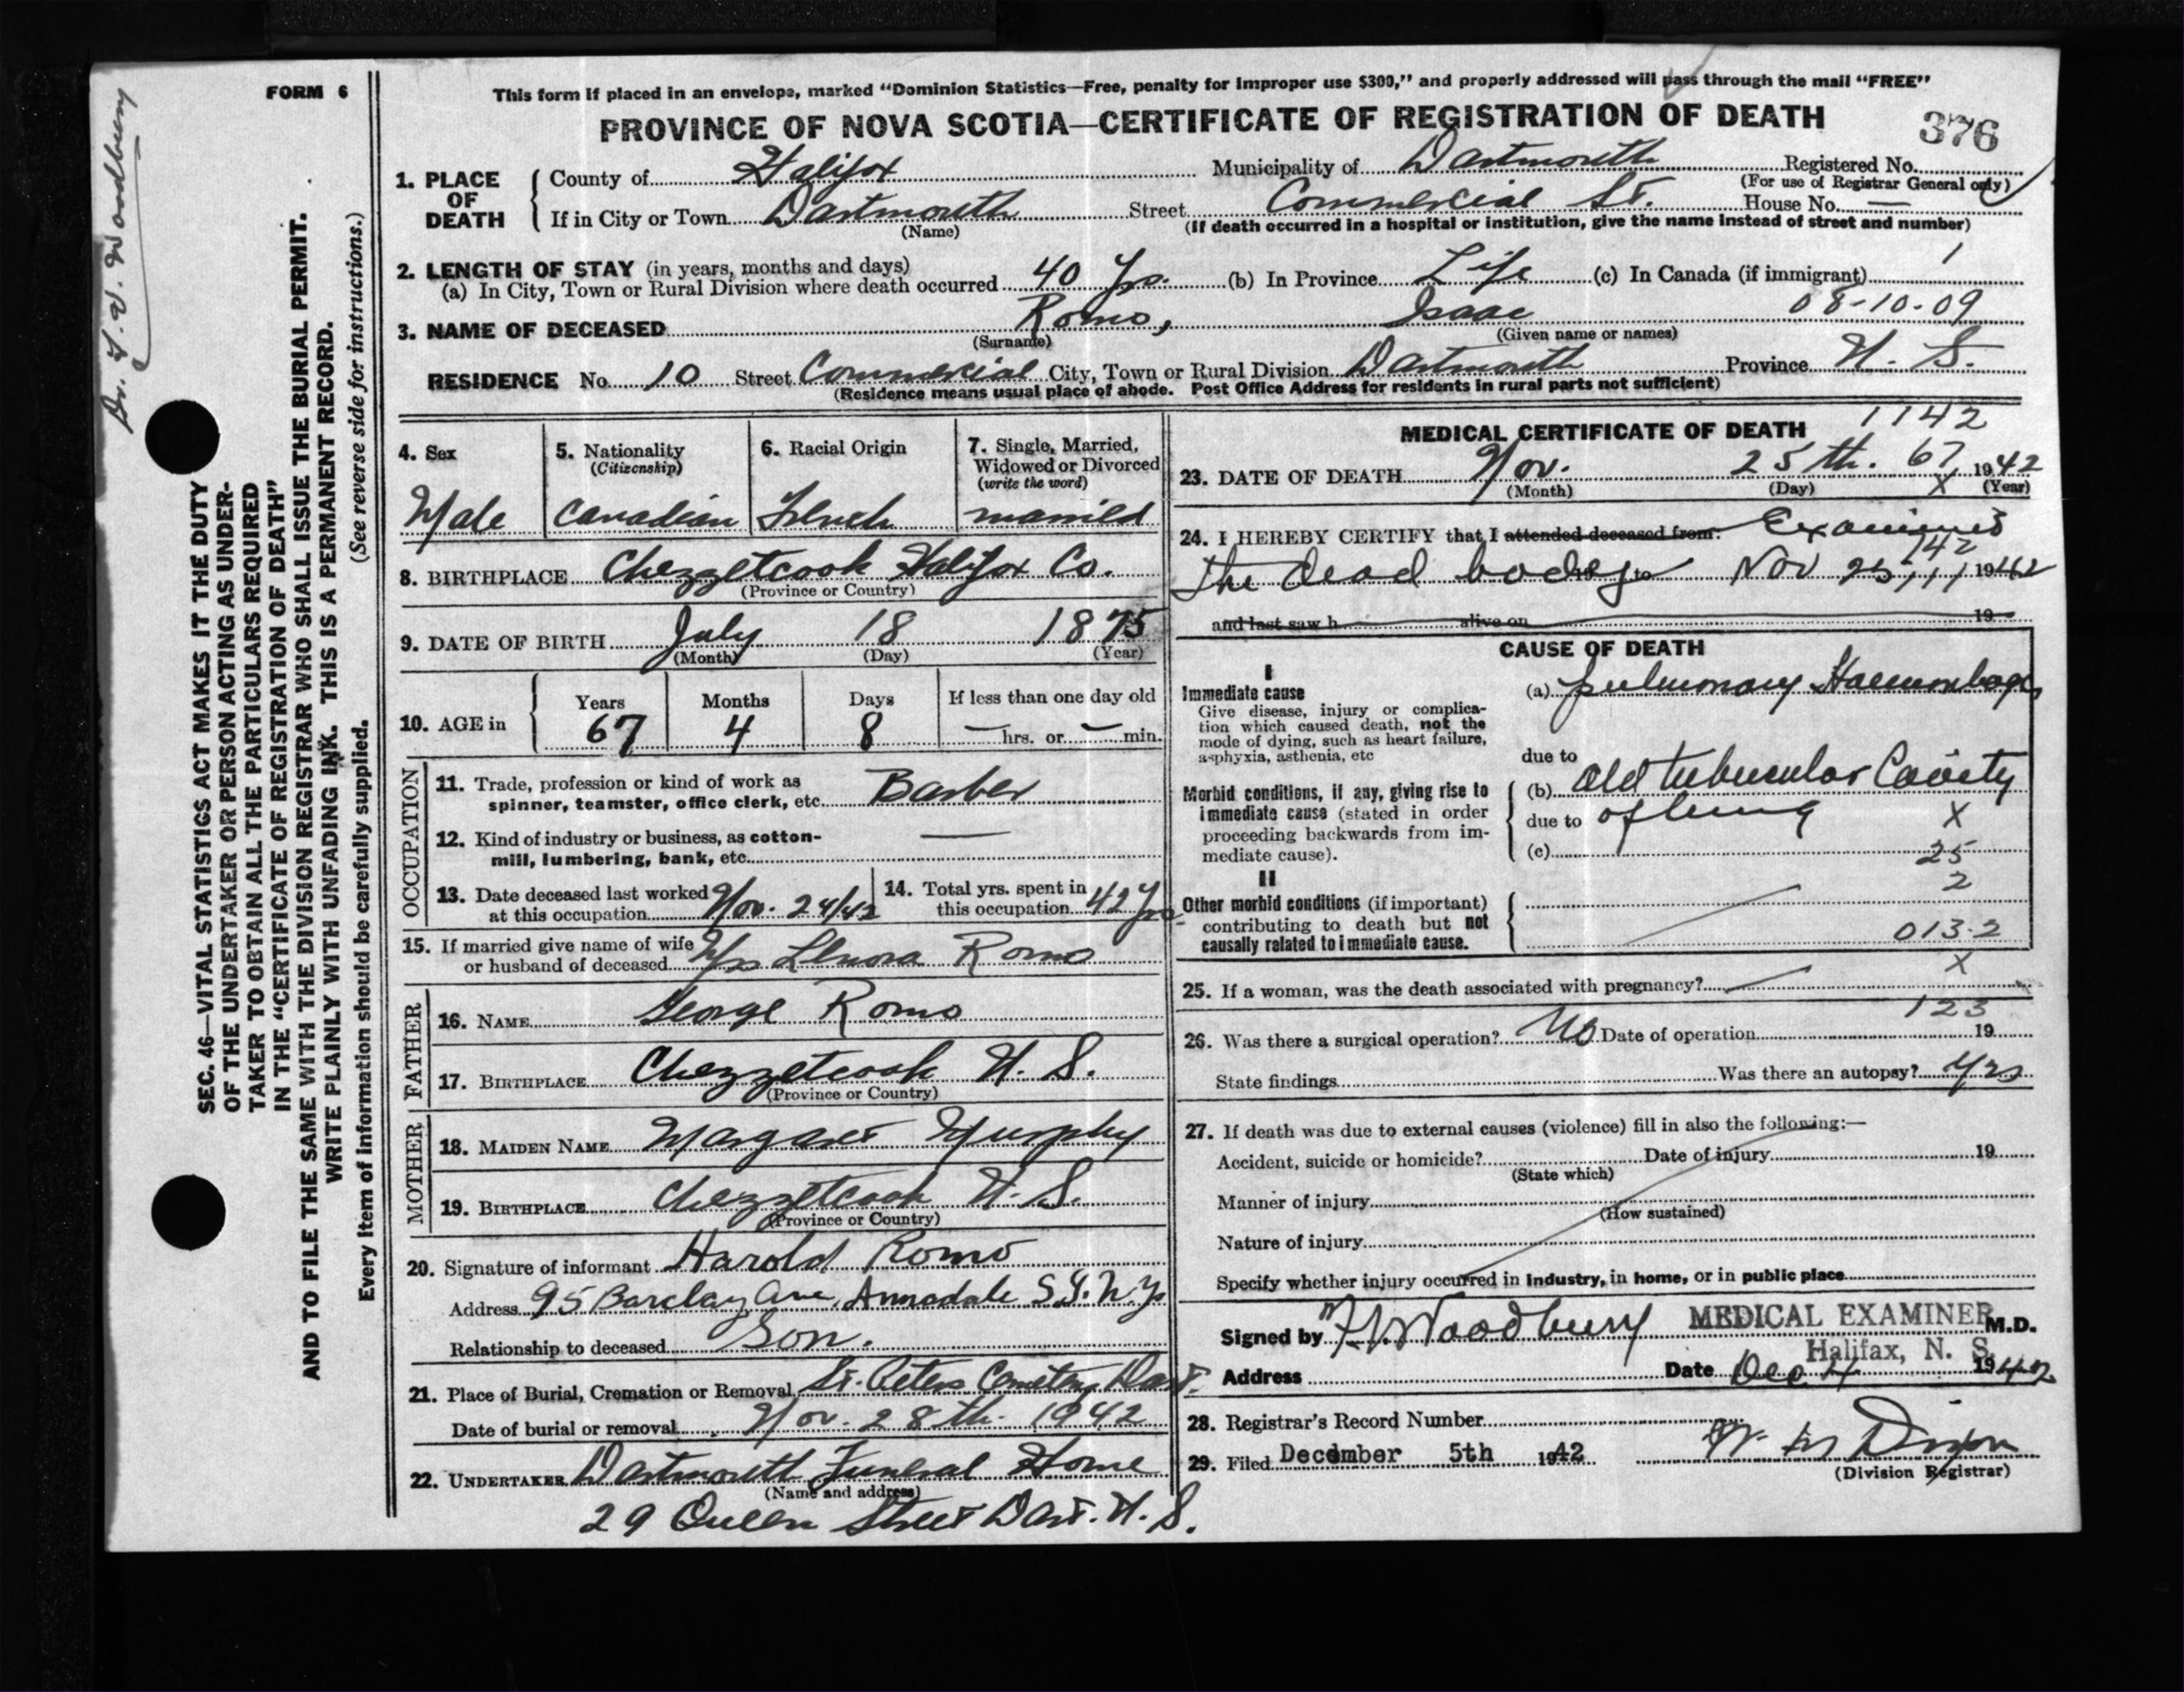 FORM 6
This form if placed in an envelope, marked "Dominion Statistics—Free, penalty for improper use $300," and properly addressed will pass through the mail "FREE"
PROVINCE OF NOVA SCOTIA—CERTIFICATE OF REGISTRATION OF DEATH
376
1. PLACE OF DEATH
County of Halifax Municipality of Dartmouth Registered No.
(For use of Registrar General only)
If in City or Town Dartmouth Street Commercial St. House No. —
(Name) (If death occurred in a hospital or institution, give the name instead of street and number)
2. LENGTH OF STAY (in years, months and days)
(a) In City, Town or Rural Division where death occurred 40 Yrs. (b) In Province Life (c) In Canada (if immigrant) 1
3. NAME OF DECEASED Romo, Isaac 08-10-09
(Surname) (Given name or names)
RESIDENCE No. 10 Street Commercial City, Town or Rural Division Dartmouth Province N. S.
(Residence means usual place of abode. Post Office Address for residents in rural parts not sufficient)
4. Sex
Male
5. Nationality
(Citizenship)
Canadian
6. Racial Origin
French
7. Single, Married,
Widowed or Divorced
(write the word)
married
8. BIRTHPLACE Chezzetcook Halifax Co.
(Province or Country)
9. DATE OF BIRTH July 18 1875
(Month) (Day) (Year)
10. AGE in
Years Months Days If less than one day old
67 4 8 — hrs. or — min.
OCCUPATION
11. Trade, profession or kind of work as
spinner, teamster, office clerk, etc. Barber
12. Kind of industry or business, as cotton-
mill, lumbering, bank, etc. —
13. Date deceased last worked
at this occupation Nov. 24/42
14. Total yrs. spent in
this occupation 42 Yrs
15. If married give name of wife
or husband of deceased Mrs Lenora Romo
FATHER
16. NAME George Romo
17. BIRTHPLACE Chezzetcook N. S.
(Province or Country)
MOTHER
18. MAIDEN NAME Margaret Murphy
19. BIRTHPLACE Chezzetcook N. S.
(Province or Country)
20. Signature of informant Harold Romo
Address 95 Barclay Ave, Annadale S.I. N.Y.
Relationship to deceased Son.
21. Place of Burial, Cremation or Removal St. Peters Cemetery Dart.
Date of burial or removal Nov. 28th. 1942
22. UNDERTAKER Dartmouth Funeral Home
(Name and address)
29 Queen Street Dart. N. S.
MEDICAL CERTIFICATE OF DEATH 1142
23. DATE OF DEATH Nov. 25th. 67 1942
(Month) (Day) X (Year)
24. I HEREBY CERTIFY that I attended deceased from: Examined
142
the dead body 19 to Nov 25 1942
and last saw h alive on 19
CAUSE OF DEATH
I
Immediate cause
Give disease, injury or complica-
tion which caused death, not the
mode of dying, such as heart failure,
asphyxia, asthenia, etc
(a) pulmonary Haemorrhage
due to
Morbid conditions, if any, giving rise to
immediate cause (stated in order
proceeding backwards from im-
mediate cause).
(b) Old tubercular Cavity
due to of lung X
(c) 25
2
II
Other morbid conditions (if important)
contributing to death but not
causally related to immediate cause.
013-2
X
25. If a woman, was the death associated with pregnancy?
123
26. Was there a surgical operation? No Date of operation 19
State findings Was there an autopsy? Yes
27. If death was due to external causes (violence) fill in also the following:—
Accident, suicide or homicide? Date of injury 19
(State which)
Manner of injury
(How sustained)
Nature of injury
Specify whether injury occurred in industry, in home, or in public place
Signed by Woodbury MEDICAL EXAMINER M.D.
Halifax, N. S.
Address Date Dec 4 1942
28. Registrar's Record Number
29. Filed December 5th 1942
(Division Registrar)
SEC. 46—VITAL STATISTICS ACT MAKES IT THE DUTY
OF THE UNDERTAKER OR PERSON ACTING AS UNDER-
TAKER TO OBTAIN ALL THE PARTICULARS REQUIRED
IN THE "CERTIFICATE OF REGISTRATION OF DEATH"
AND TO FILE THE SAME WITH THE DIVISION REGISTRAR WHO SHALL ISSUE THE BURIAL PERMIT.
WRITE PLAINLY WITH UNFADING INK. THIS IS A PERMANENT RECORD.
Every item of information should be carefully supplied. (See reverse side for instructions.)
Dr. Woodbury